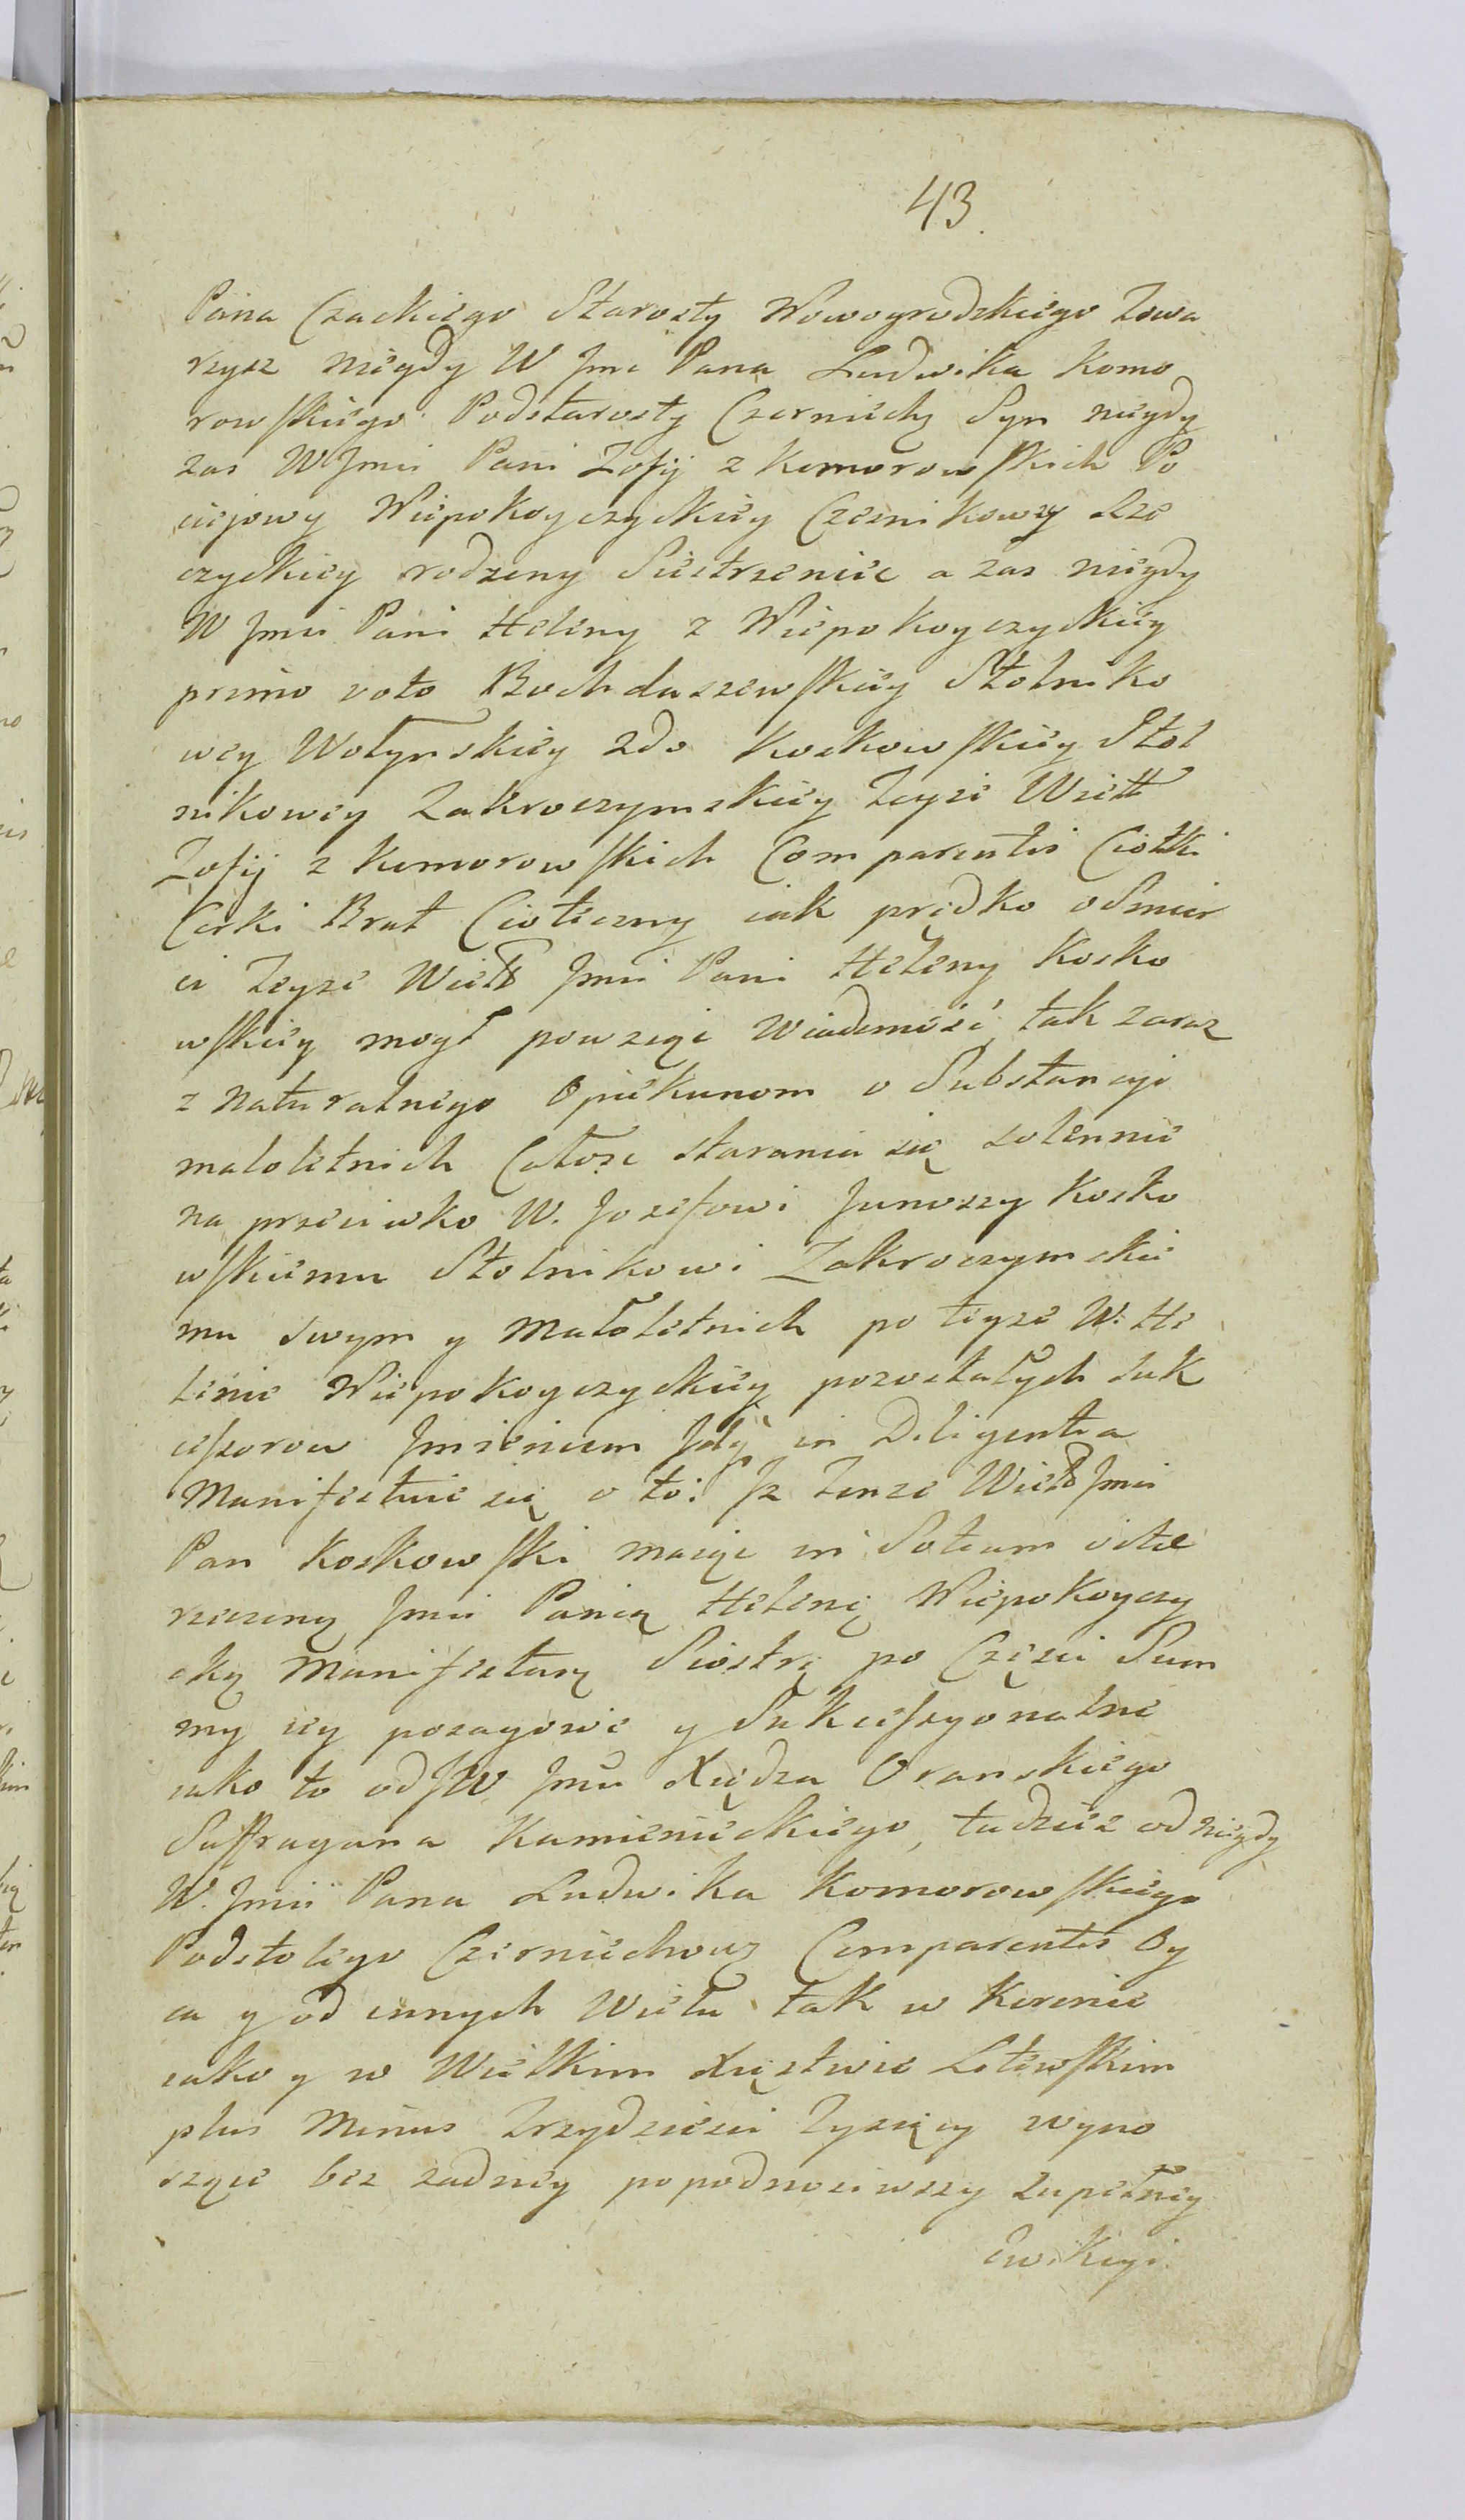 43.
Pana Czackiego Starosty Nowogrodzkiego Towa
rzysz niegdy W Jmc Pana Ludwika Komo
rowskiego Podstarosty Czerniech Syn niegdy
zas W Jmci Pani Zofij z Komorowskich Po
ciejowy Niepokoyczyckiey Czesnikowey
czyckiey rodzeny Siestrzeniec a zas niegdy
W Jmci Pani Heleny z Niepokoyczyckiey
primo voto Bochdaszewskiey Stolniko
wey Wołynskiey 2do Koskowskiey Stol
nikowey Zakroczymskiey Teyże Wielł
Zofij z Komorowskich Comparentis Ciotki
Corki Brat Cioteczny iak prędko o Smier
ci Teyże Wielł Jmci Pani Heleny Kosko
wskiey mogł powziąć Wiadomość, tak zaraz
z Naturalnego Opiekunom o Substancyi
małoletnich Całosc starania się solennie
na przeciwko W. Jozefowi Junoszy Kosko
wskiemu Stolnikowi Zakroczymskie
mu swym y Małoletnich po teyże W. He
lenie Niepokoyczyckiey pozostałych Suk
cessorow Jmieniem in Diligentia
Manifestuie się o to: Jż Tenże Wielł Jmci
Pan Koskowski maiąc in Sotiam
rzeczoną Jmci Panią Helenę Niepokoyczy
cką Manifestanta Siostrę po Części Sum
my iey posagowe y Sukcessyonalne
iako to od JW Jmci Xiędza Oranskiego
Suffragana Kamienieckiego, tudziez od niegdy
W. Jmci Pana Ludwika Komorowskiego
Podstolego Czerniechow Comparentis Oy
ca y od innych Wielu tak w Koronie
iako y w Wielkim Xięstwie Litewskim
plus Minus Trzydzieści Tysięcy wyno
szące bez zadney popodnosiwszy zupełney
Ewikcyi.